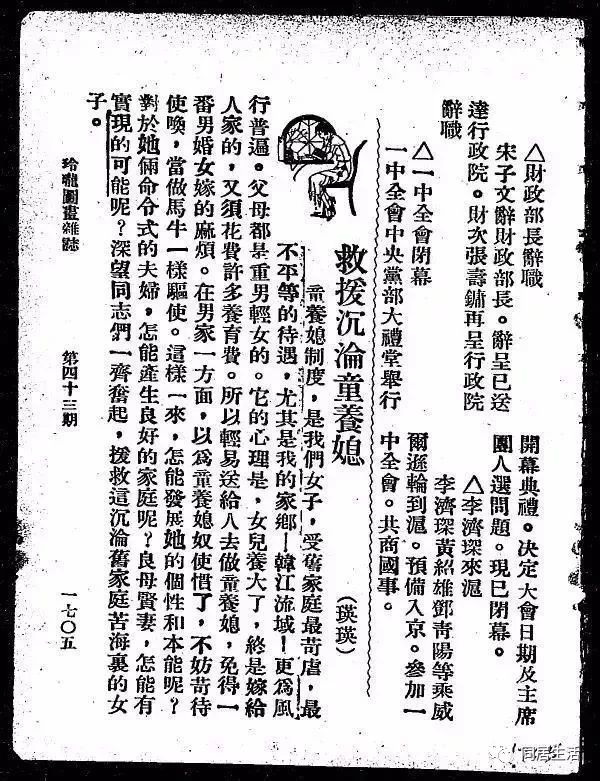 △財政部長辭職
宋子文辭財政部長。辭呈已送
達行政院。財次張壽鏞再呈行政院
辭職
△一中全會閉幕
一中全會中央黨部大禮堂舉行
開幕典禮。決定大會日期及主席
團人選問題。現已閉幕。
△李濟琛來滬
李濟琛黃紹雄鄧青陽等乘威
爾遜輪到滬。預備入京。參加一
中全會。共商國事。
救援沉淪童養媳 (瑛瑛)
童養媳制度，是我們女子，受舊家庭最苛虐，最
不平等的待遇，尤其是我的家鄉—韓江流域—更爲風
行普遍。父母都是重男輕女的。它的心理是，女兒養大了，終是嫁給
人家的，又須花費許多養育費。所以輕易送給人去做童養媳，免得一
番男婚女嫁的麻煩。在男家一方面，以爲童養媳奴使慣了，不妨苛待
使喚，當做馬牛一樣驅使。這樣一來，怎能發展她的個性和本能呢？
對於她倆命令式的夫婦，怎能產生良好的家庭呢？良母賢妻，怎能有
實現的可能呢？深望同志們一齊奮起，援救這沉淪舊家庭苦海裏的女
子。
玲瓏圖畫雜誌 第四十三期 一七〇五
同居生活